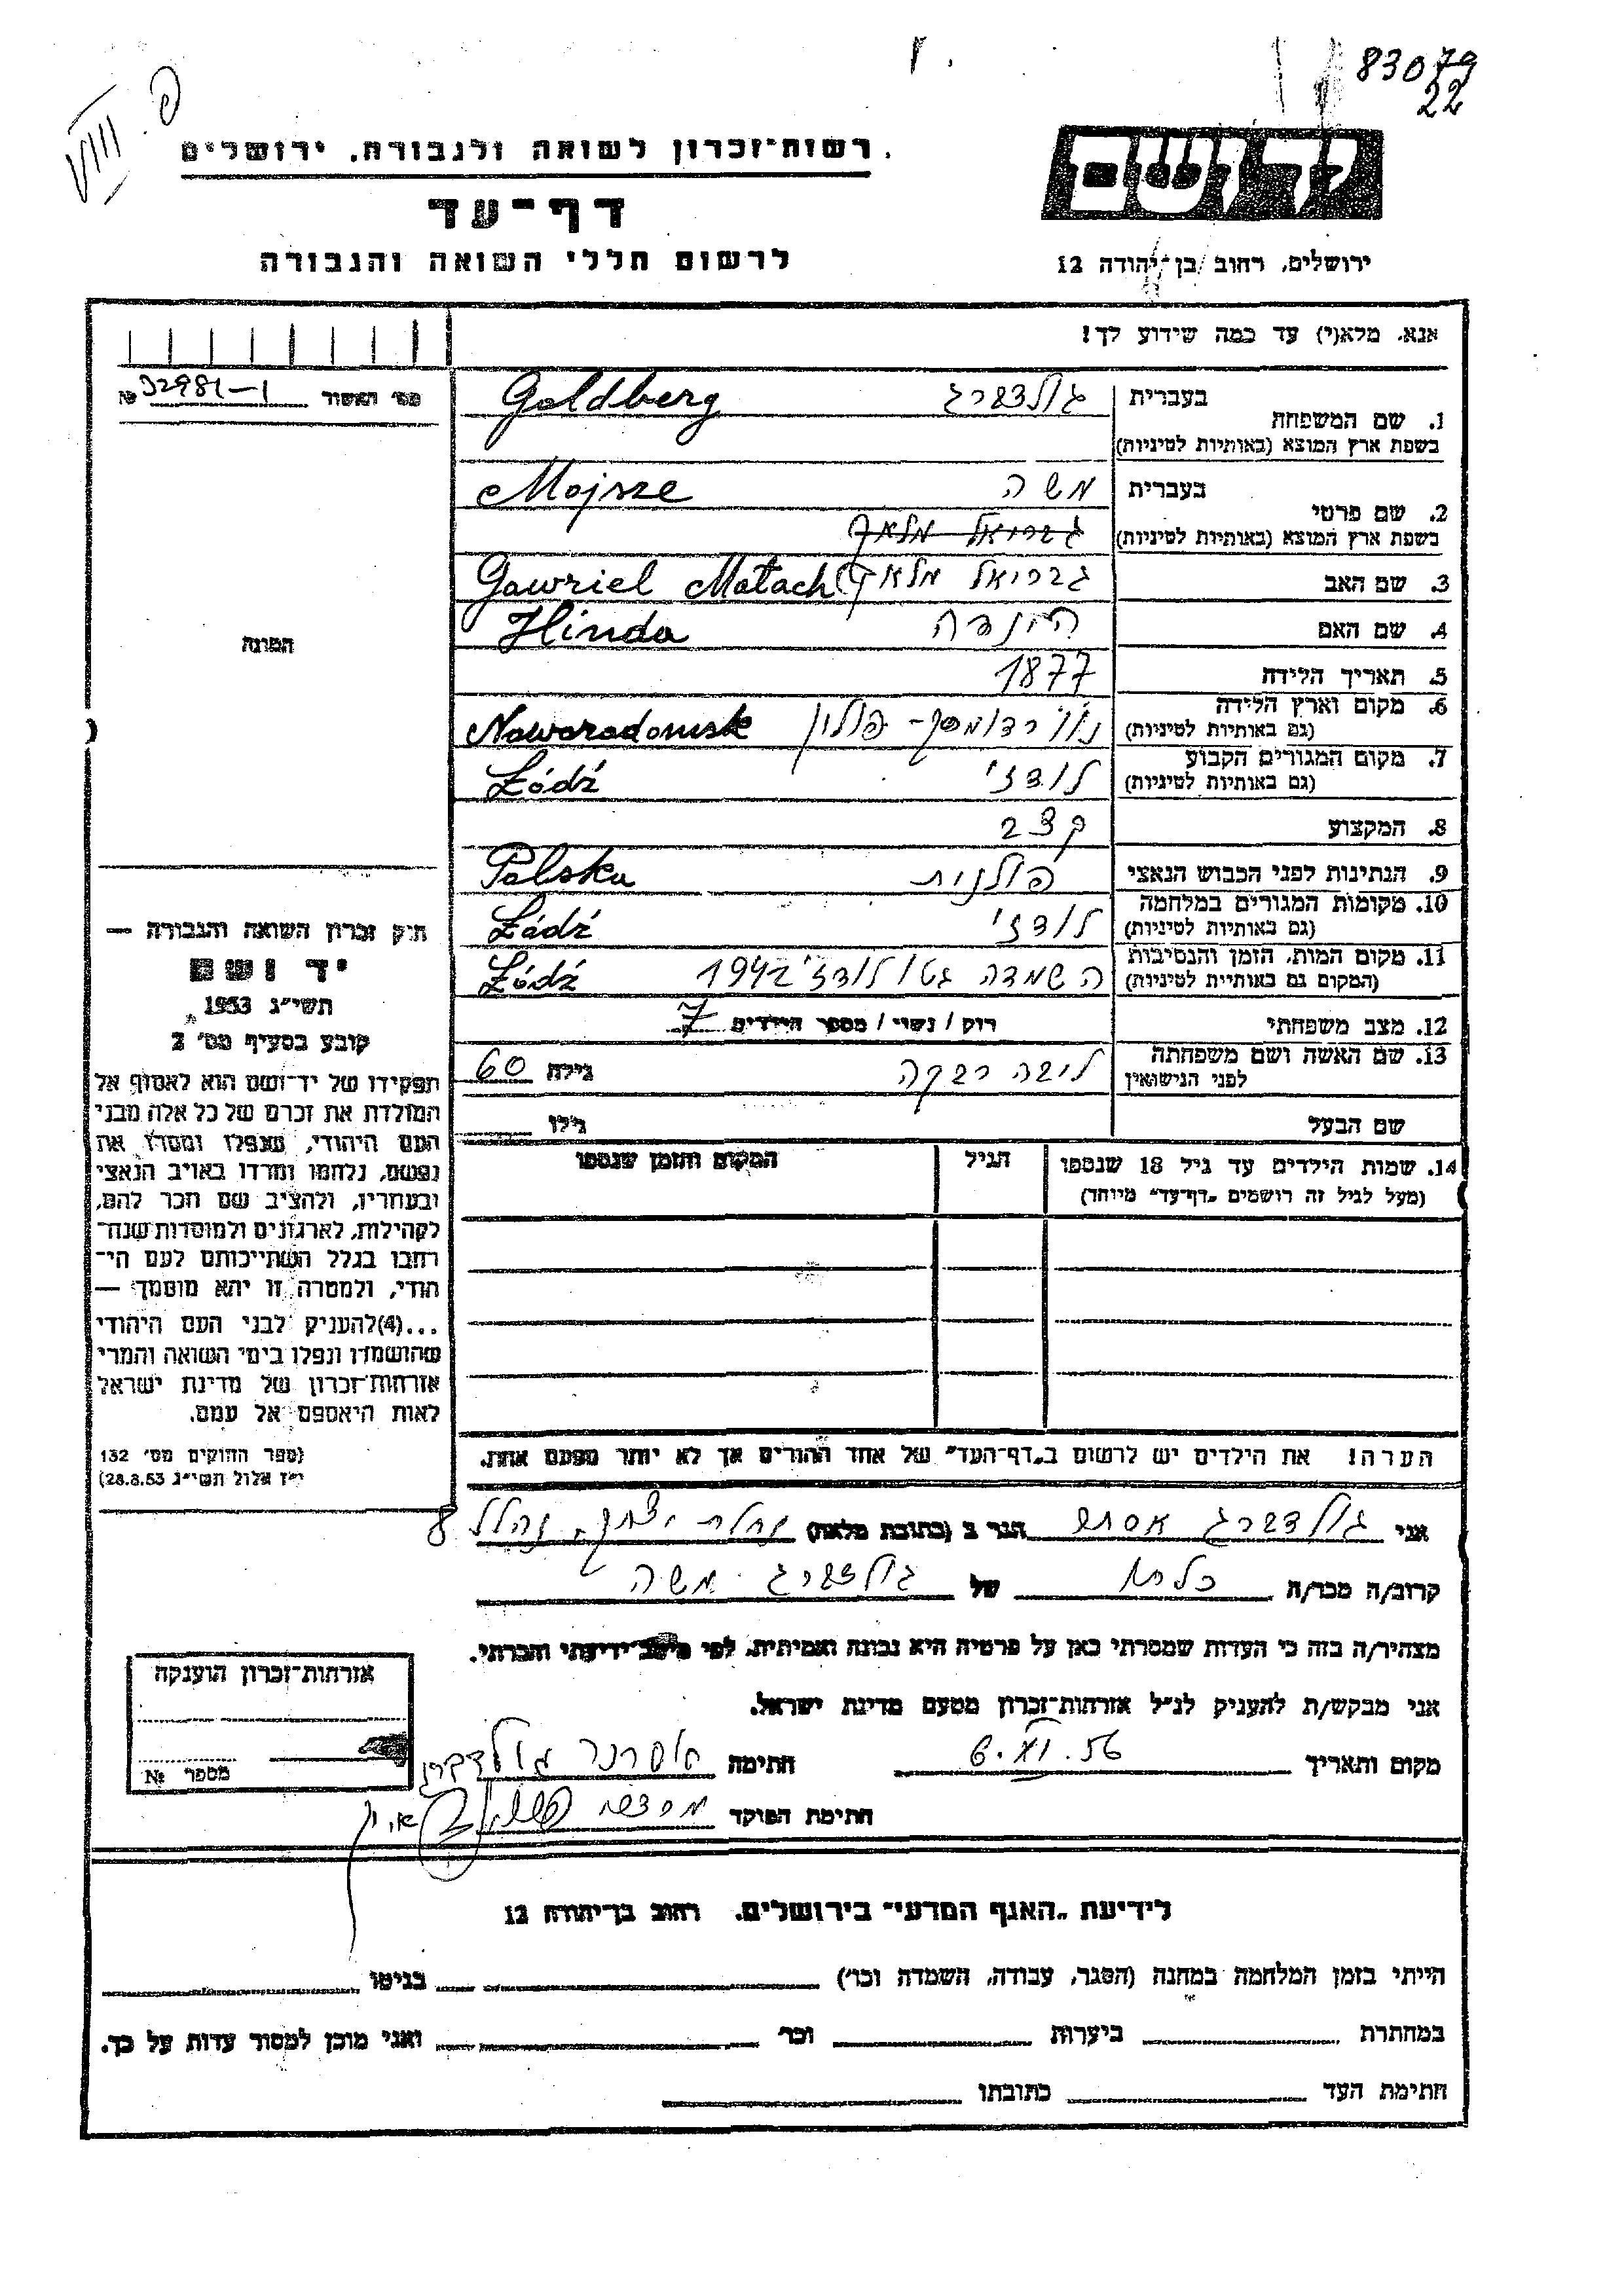 83079
22
VIII פ.
רשות־זכרון לשואה ולגבורה, ירושלים
דף־עד
לרשום חללי השואה והגבורה
יד ושם
ירושלים, רחוב בן־יהודה 12
אנא, מלא(י) עד כמה שידוע לך!
מס' האשור № 32981-1
התמונה
1. שם המשפחה בעברית גולדברג Goldberg
בשפת ארץ המוצא (באותיות לטיניות)
2. שם פרטי בעברית משה Mojsze
בשפת ארץ המוצא (באותיות לטיניות) גבריאל מלאך
3. שם האב גבריאל מלאך Gawriel Matach
4. שם האם הינדה Hinda
5. תאריך הלידה 1877
6. מקום וארץ הלידה נוורדומסק - פולין Noworadomsk
(גם באותיות לטיניות)
7. מקום המגורים הקבוע לודז' Łódź
(גם באותיות לטיניות)
8. המקצוע קצב
9. הנתינות לפני הכבוש הנאצי פולנית Polska
10. מקומות המגורים במלחמה לודז' Łódź
(גם באותיות לטיניות)
11. מקום המות, הזמן והנסיבות השמדה גטו לודז' 1942 Łódź
(המקום גם באותיות לטיניות)
12. מצב משפחתי רוק / נשוי / מספר הילדים 7
13. שם האשה ושם משפחתה לפני הנישואין ליבה רבקה גילה 60
שם הבעל גילו
14. שמות הילדים עד גיל 18 שנספו הגיל המקום והזמן שנספו
(מעל לגיל זה רושמים "דף־עד" מיוחד)
הערה! את הילדים יש לרשום ב"דף־העד" של אחד ההורים אך לא יותר מפעם אחת.
חוק זכרון השואה והגבורה —
יד ושם
תשי"ג 1953
קובע בסעיף מס' 2
תפקידו של יד־ושם הוא לאסוף אל
המולדת את זכרם של כל אלה מבני
העם היהודי, שנפלו ומסרו את
נפשם, נלחמו ומרדו באויב הנאצי
ובעוזריו, ולהציב שם וזכר להם,
לקהילות, לארגונים ולמוסדות שנח־
רבו בגלל השתייכותם לעם הי־
הודי, ולמטרה זו יהא מוסמך —
...(4) להעניק לבני העם היהודי
שהושמדו ונפלו בימי השואה והמרי
אזרחות־זכרון של מדינת ישראל
לאות היאספם אל עמם.
(ספר החוקים מס' 132
י"ז אלול תשי"ג 28.8.53)
אני גולדברג אסתר הגר ב (כתובת מלאה) נחלת יצחק, נהלל 8
קרוב/ה מכר/ה כלתו של גולדברג משה
מצהיר/ה בזה כי העדות שמסרתי כאן על פרטיה היא נכונה ואמיתית, לפי מיטב ידיעתי והכרתי.
אני מבקש/ת להעניק לנ"ל אזרחות־זכרון מטעם מדינת ישראל.
מקום ותאריך 6. VI. 56 חתימה אסתר גולדברג
חתימת הפוקד
אזרחות־זכרון הוענקה
מספר №
לידיעת "האגף המדעי" בירושלים, רחוב בן־יהודה 12
הייתי בזמן המלחמה במחנה (הסגר, עבודה, השמדה וכו') בגיטו
במחתרת ביערות וכו' ואני מוכן למסור עדות על כך.
חתימת העד כתובתו